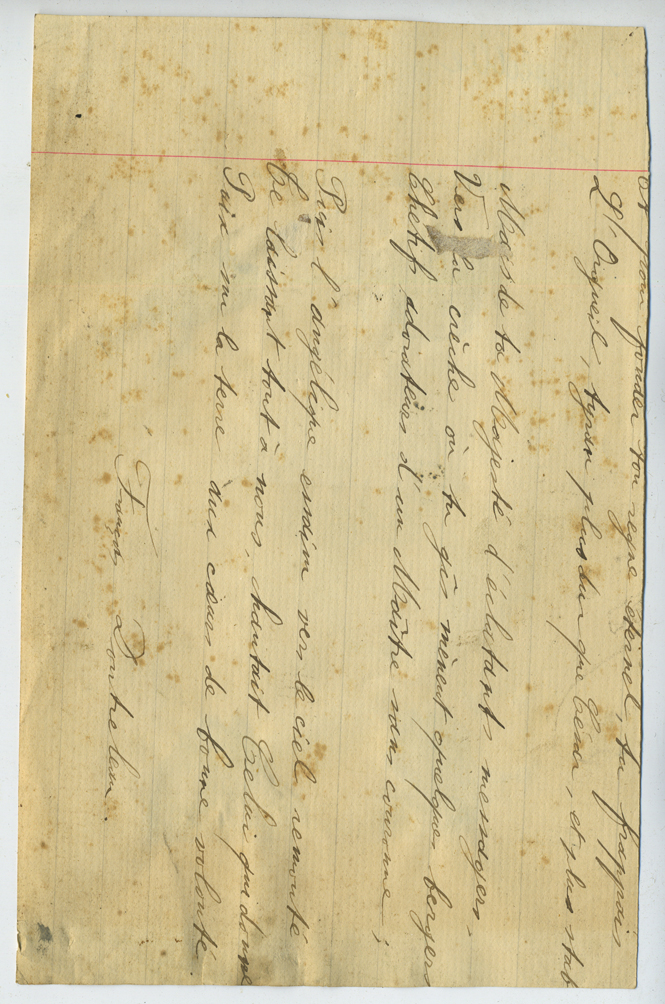 Et pour fonder ton règne éternel, tu frappais
L'Orgueil, tyran plus dur que César, et plus stab
Mais de ta Majesté d'éclatants messagers,
Vers la crèche où tu gis mènent quelques bergers
Chétifs adorateurs d'un Maître sans couronne ;
Puis l'angélique essaim vers le ciel remonté
Te laissant tout à nous, chantait Celui qui donne
Paix sur la terre aux cœurs de bonne volonté.